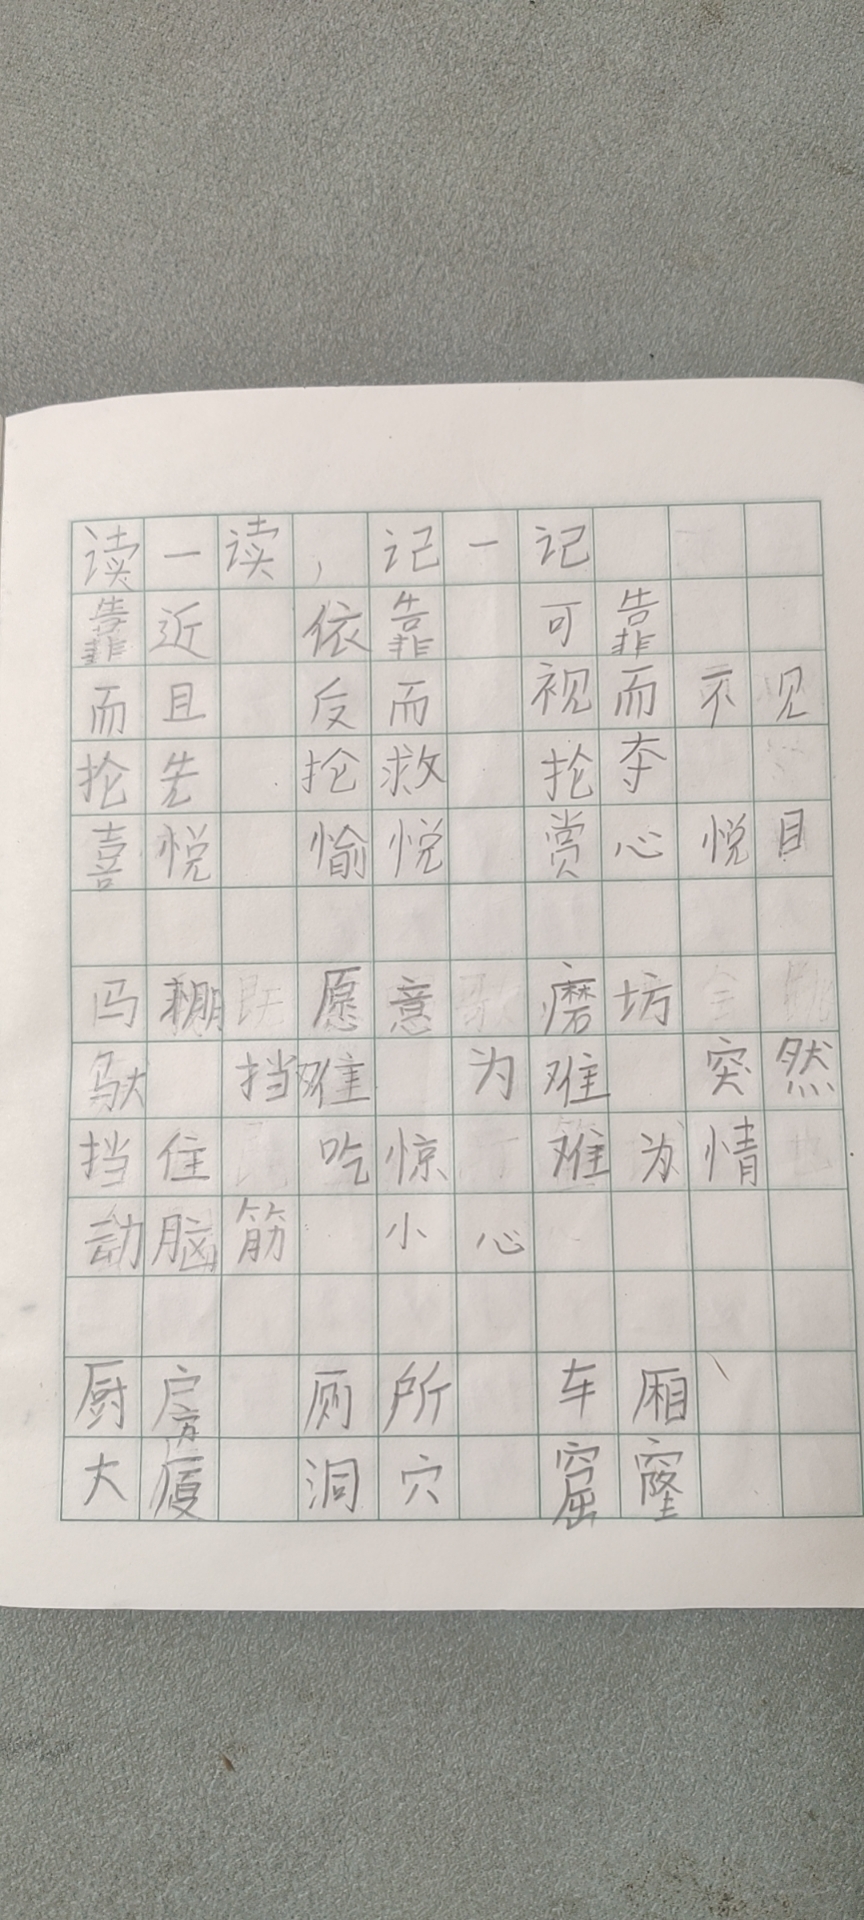 读一读，记一记
靠近 依靠 可靠
而且 反而 视而不见
抢先 抢救 抢夺
喜悦 愉悦 赏心悦目
马棚 愿意 磨坊
驮 挡难 为难 突然
挡住 吃惊 难为情
动脑筋 小心
厨房 厕所 车厢
大厦 洞穴 窟窿